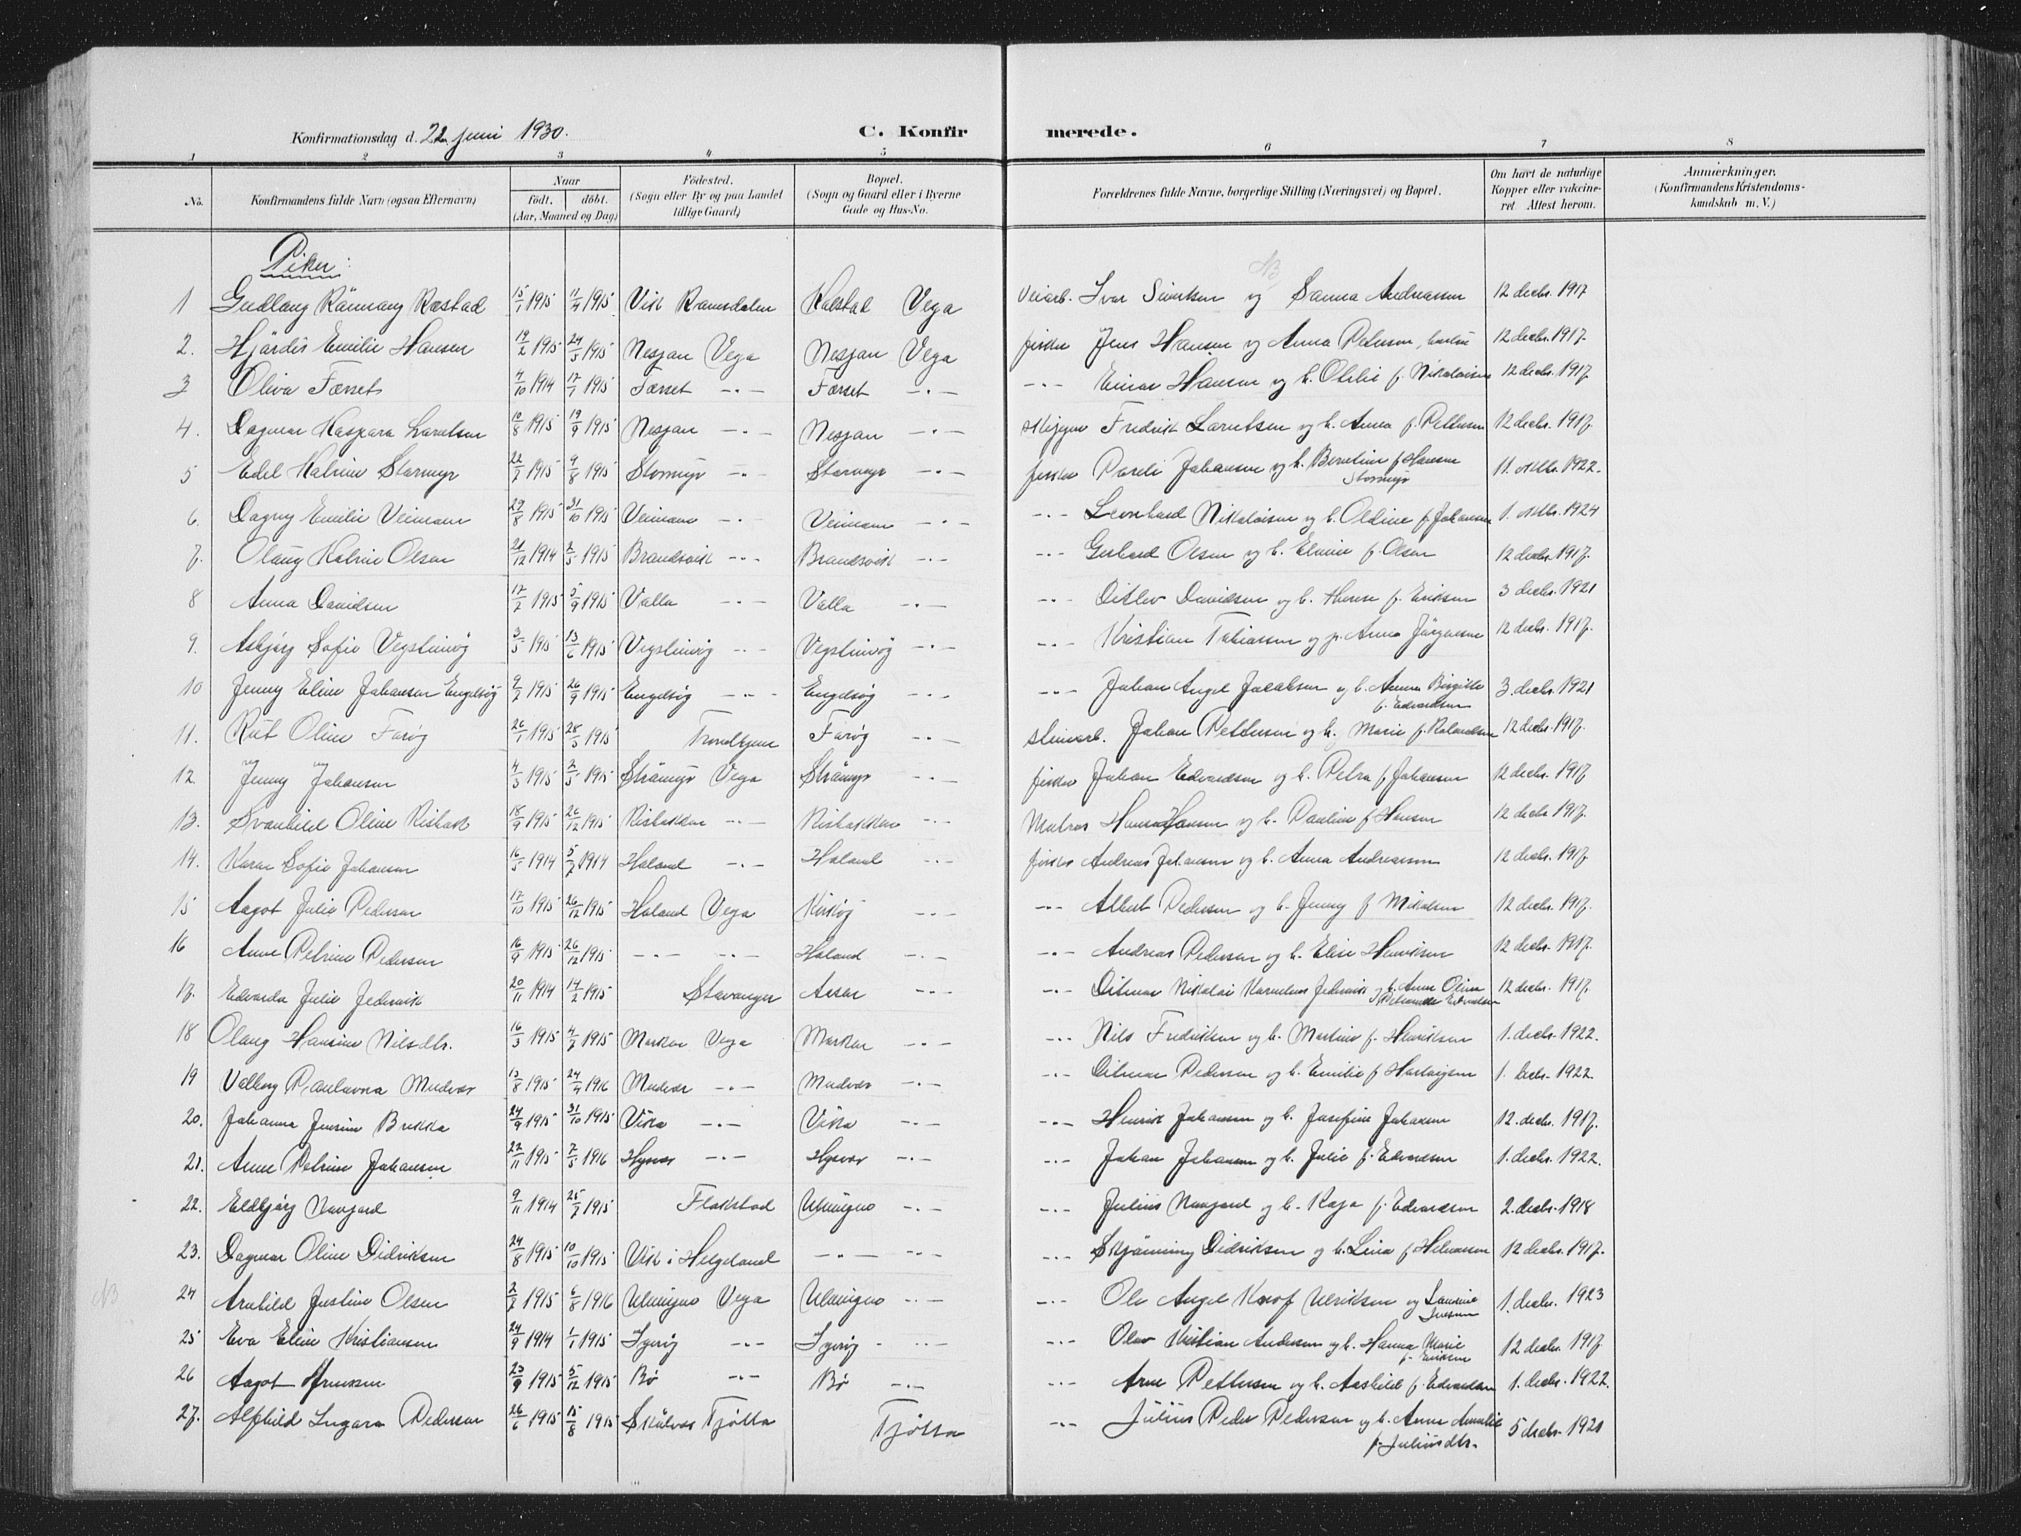 Konfirmationsdag d. 22 juni 1930. C. Konfirmerede.
1 2 3 4 5 6 7 8
No. Konfirmandens fulde Navn (ogsaa Efternavn) Naar født. døbt. (Aar, Maaned og Dag) Fødested. (Sogn eller By og paa Landet tillige Gaard) Bopæl. (Sogn og Gaard eller i Byerne Gade og Hus-No. Forældrenes fulde Navne, borgerlige Stilling (Næringsvei) og Bopæl. Om havt de naturlige Kopper eller vaccineret Attest herom. Anmærkninger. (Konfirmandens Kristendomskundskab m. V.)
Piker:
1 Gudlaug Rånnaug Rostad 15/1 1915 11/4 1915 Vik Ramsdalen Kalstad Vega Veiarb. Ivar Sivertsen og Sanna Andreassen 12 decbr. 1917
2. Hjördis Emilie Hansen 19/2 1915 24/5 1915 Nesjan Vega Nesjan Vega fisker Jens Hansen og Anna Petersen 12 decbr. 1917.
3 Oliva Færset 4/10 1914 17/1 1915 Færset -"- Færset -"- -"- Einar Hansen og h. Otelie f. Nikolaisen 12 decbr. 1917.
4. Dagmar Kaspara Larntsen 10/8 1915 19/9 1915 Nesjan -"- Nesjan -"- Fredrik Larntsen og h. Anna f. Pettersen 12 decbr. 1917.
5 Edel Katrine Stormyr 22/2 1915 9/8 1915 Stormyr -"- Stormyr -"- fisker Pareli Johansen og h. Berntine f Hansen Stormyr 11. oktbr. 1922.
6. Dagny Emilie Veimoen 29/8 1915 31/10 1915 Veimoen -"- Veimoen -"- -"- Leonhard Nikolaisen og h. Oldine f. Johansen 1. oktbr. 1924
7. Olaug Katrine Olsen 21/12 1914 2/5 1915 Brandsvik -"- Brandsvik -"- -"- Gerhard Olsen og h. Elmine f. Olsen 12 decbr. 1917.
8 Anna Davidsen 17/2 1915 5/9 1915 Valla -"- Valla -"- -"- Ditlev Davidsen og h. Therese f. Eriksen 3 decbr. 1921
9. Asbjørg Sofie Vegsteinvög 3/5 1915 13/6 1915 -"- -"- -"- Kristian Tobiassen og p. Anna Jörgensen 12 decbr. 1917.
10 Jenny Eline Johansen Engelsög 9/2 1915 26/9 1915 Engelsög -"- Engelsög -"- -"- Johan Angel Jacobsen og h. Anna Birgitte f. Edvardsen 3. decbr. 1921
11. Rut Oline Farög 26/1 1915 28/3 1915 Trondhjem Farög -"- steinarb. Johan Pettersen og h. Marie f. Rolandsen 12 decbr. 1917.
12 Jenny Johansen 4/3 1915 2/5 1915 Strömyr Vega Strömyr -"- fisker Johan Edvardsen og h. Petra f Johansen 12 decbr. 1917
13. Svanhild Oline Risbak 18/9 1915 26/12 1915 Risbakken -"- Risbakken -"- Matros Hans Hansen og h. Pauline f Hansen 12 decbr 1917.
14. Karen Sofie Johansen 16/5 1914 5/7 1914 Holand -"- Holand -"- fisker Andreas Johansen og h. Anna Andreassen 12 decbr. 1917.
15 Aagot Julie Pedersen 17/10 1915 26/12 1915 Holand Vega Kirkög -"- -"- Albert Pedersen og h. Jenny f Mikalsen 12 decbr. 1917.
16 Anne Petrine Pedersen 16/9 1915 26/12 1915 -"- -"- Holand -"- -"- Andreas Pedersen og h. Elise Henriksen 12 decbr. 1917.
17. Edvarda Julie Jedervik 20/11 1914 14/2 1915 Stavanger -"- -"- Ditmar Nikolai Kornelius Jedervik og h. Anna Olina Edvardsen 12 decbr. 1917.
18 Olaug Hansine Nilsdtr. 16/3 1915 4/7 1915 Marken Vega Marken -"- -"- Nils Fredriksen og h. Martine f. Henriksen 1. decbr. 1922.
19 Valborg Paulavna Mudvær 13/8 1915 24/4 1916 Mudvær -"- Mudvær -"- -"- Ditmar Pedersen og h. Emilie f Hartvigsen 1. decbr. 1922.
20. Johanna Jensine Brekka 24/9 1915 31/10 1915 Vika -"- Vika -"- -"- Henrik Johansen og h. Josefine Johansen 12. decbr. 1917.
21. Anne Petrine Johansen 22/11 1915 7/5 1916 Hysvær -"- Hysvær -"- -"- Johan Johansen og h. Julie f. Edvardsen 1. decbr. 1922.
22. Eldbjörg Naugard 9/11 1914 25/7 1915 Flakstad -"- -"- Julius Naugard og h. Kaja f. Edvardsen 2. decbr. 1918
23. Dagmar Oline Didriksen 24/8 1915 10/10 1915 Vik i Helgeland -"- -"- -"- Skjönning Didriksen og h. Lina f Helmersen 12 decbr. 1917.
24 Arnhild Justine Olsen 2/2 1915 6/8 1916 Vega -"- -"- Ole Angel Knof Ulriksen og Iversen 1. decbr. 1923
25 Eva Eline Kristiansen 24/9 1914 1/1 1915 -"- -"- -"- Olav Kristian Andersen og h. Hanna Marie f. Eriksen 12 decbr. 1917.
26 Aagot Arnesen 23/9 1915 5/12 1915 Bø -"- Bø -"- -"- Arne Pettersen og h. Aashild f. Edvardsen 1. decbr. 1922.
27. Alfhild Ingara Pedersen 26/6 1915 15/8 1915 Skålvær Tjøtta Tjøtta -"- Julius Peder Pedersen og h. Anna Amalie f. Juliusdtr. 5 decbr. 1921